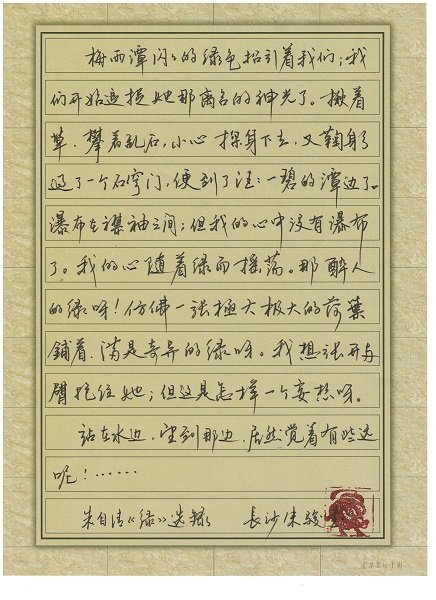 梅雨潭闪〻的绿色招引着我们；我
们开始追捉她那离合的神光了。揪着
草，攀着乱石，小心探身下去，又鞠躬
过了一个石穹门，便到了汪〻一碧的潭边了。
瀑布在襟袖之间；但我的心中没有瀑布
了。我的心随着绿而摇荡。那醉人
的绿呀！仿佛一张極大极大的荷葉
鋪着，满是奇异的绿呀。我想张开两
臂抱住她；但这是怎样一个妄想呀。
站在水边，望到那边，居然觉着有些远
呢！……
朱自清《绿》选录 長沙